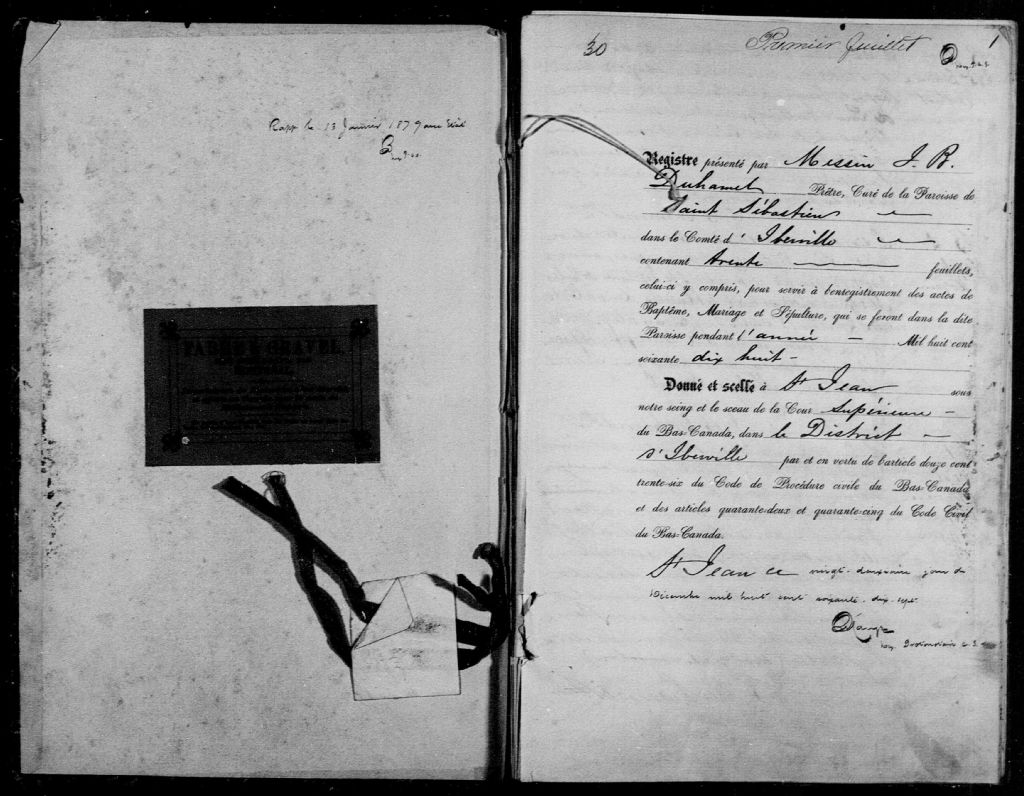 Rapp le 13 Janvier 1879
FABRE & GRAVEL
30
Premier feuillet
1
Registre présenté par Messire J. B.
Duhamel Prêtre, Curé de la Paroisse de
Saint Sébastien
dans le Comté d'Iberville
contenant trente feuillets,
celui-ci y compris, pour servir à l'enregistrement des actes de
Baptême, Mariage et Sépulture, qui se feront dans la dite
Paroisse pendant l'année Mil huit cent
soixante dix huit -
Donné et scellé à St Jean sous
notre seing et le sceau de la Cour Supérieure -
du Bas-Canada, dans le District -
d'Iberville par et en vertu de l'article douze cent
trente-six du Code de Procédure civile du Bas-Canada
et des articles quarante-deux et quarante-cinq du Code Civil
du Bas-Canada.
St Jean ce vingt-deuxième jour de
Décembre mil huit cent soixante-dix-sept